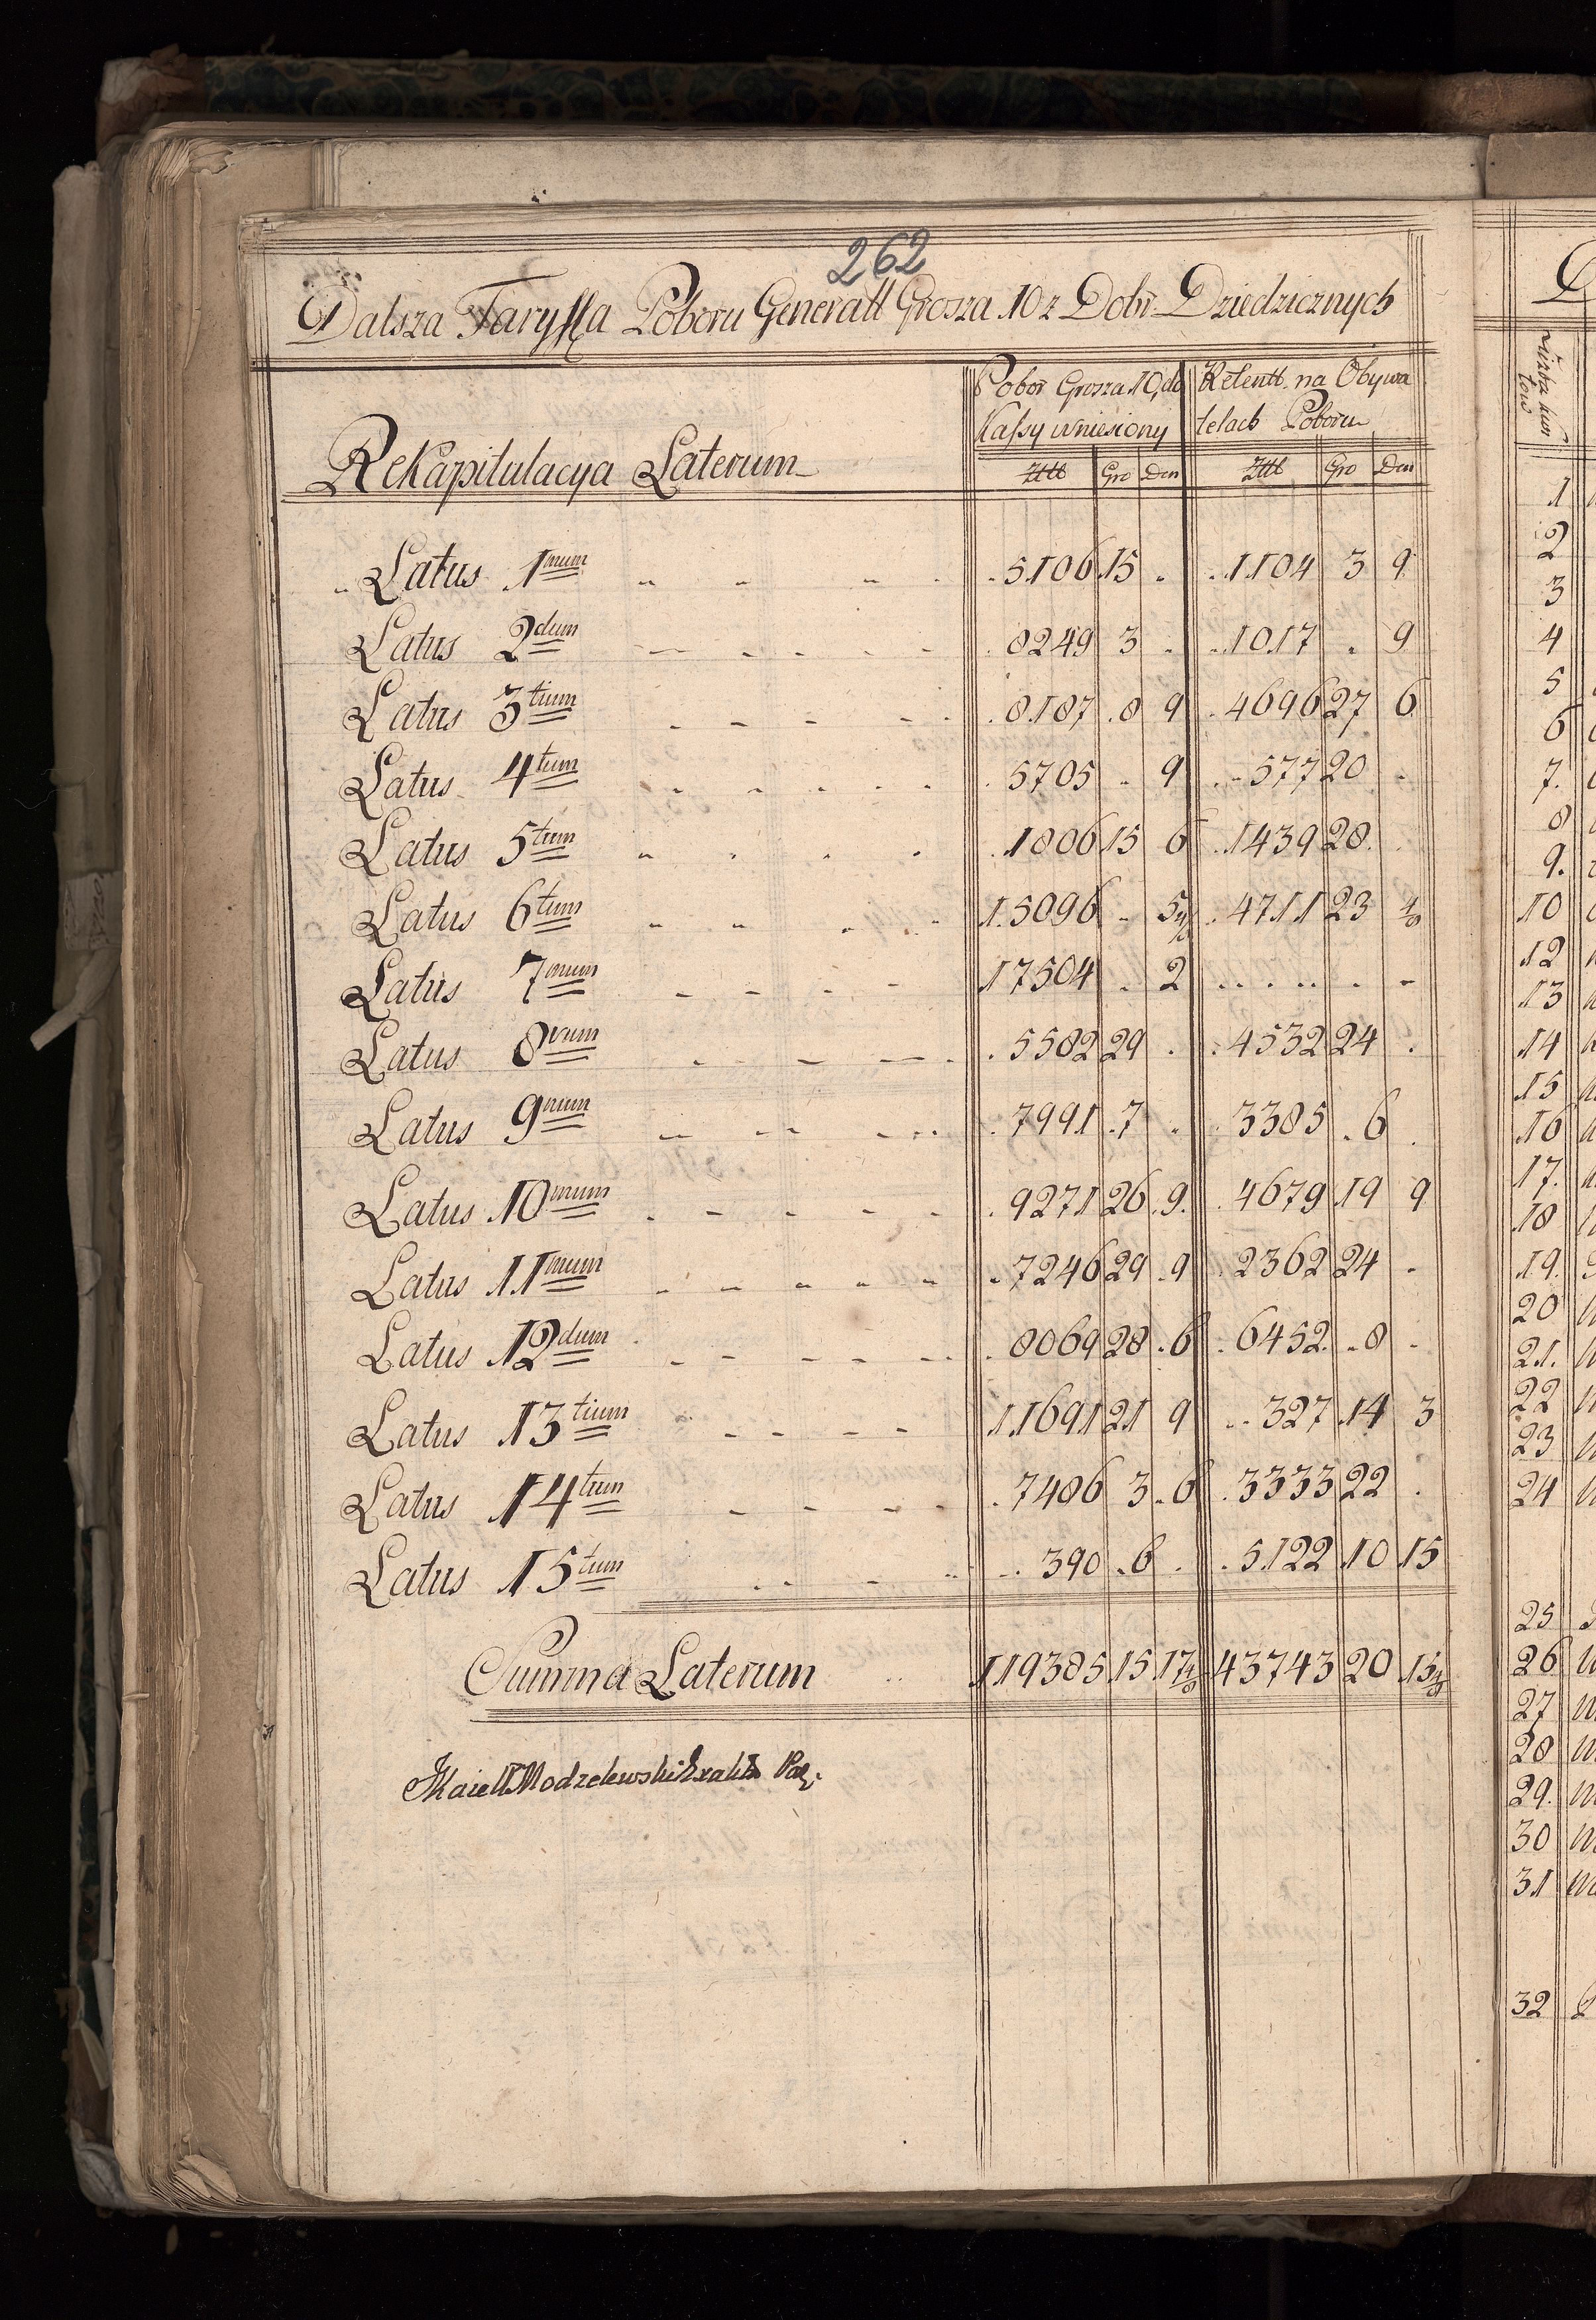 262
Dalsza Taryffa Poboru Generall Grosza 10 z Dobr Dziedzicznych
Rekapitulacyja Laterum
Pobor Grosza 10, do Kassy wniesiony
Retentt. na Obywa telach Poboru
Ztt Gro Den Ztt Gro Den
Latus 1mum 5106 15 . 1104 3 9
Latus 2dum 8249 3 . 1017 . 9
Latus 3tium 8187 8 9 4696 27 6
Latus 4tum 5705 . 9 577 20 .
Latus 5tum 1806 15 6 1439 28 .
Latus 6tum 15096 . 5 4/8 4711 23 4/8
Latus 7mum 17504 . 2 . . . . . -
Latus 8vum 5582 29 . 4532 24 .
Latus 9num 7991 7 . 3385 6 .
Latus 10mum 9271 26 9 4679 19 9
Latus 11mum 7246 29 9 2362 24 .
Latus 12dum 8069 28 6 6452 8 .
Latus 13tium 11691 21 9 327 14 3
Latus 14tum 7486 3 6 3333 22 .
Latus 15tum 390 6 . 5122 10 15
Summa Laterum 119385 15 17 4/8 43743 20 15 4/8
Modzelewski
1
2
3
4
5
6
7.
8
9.
10
12
13
14
15
16
17.
18
19.
20
21.
22
23
24
25
26
27
28
29.
30
31
32